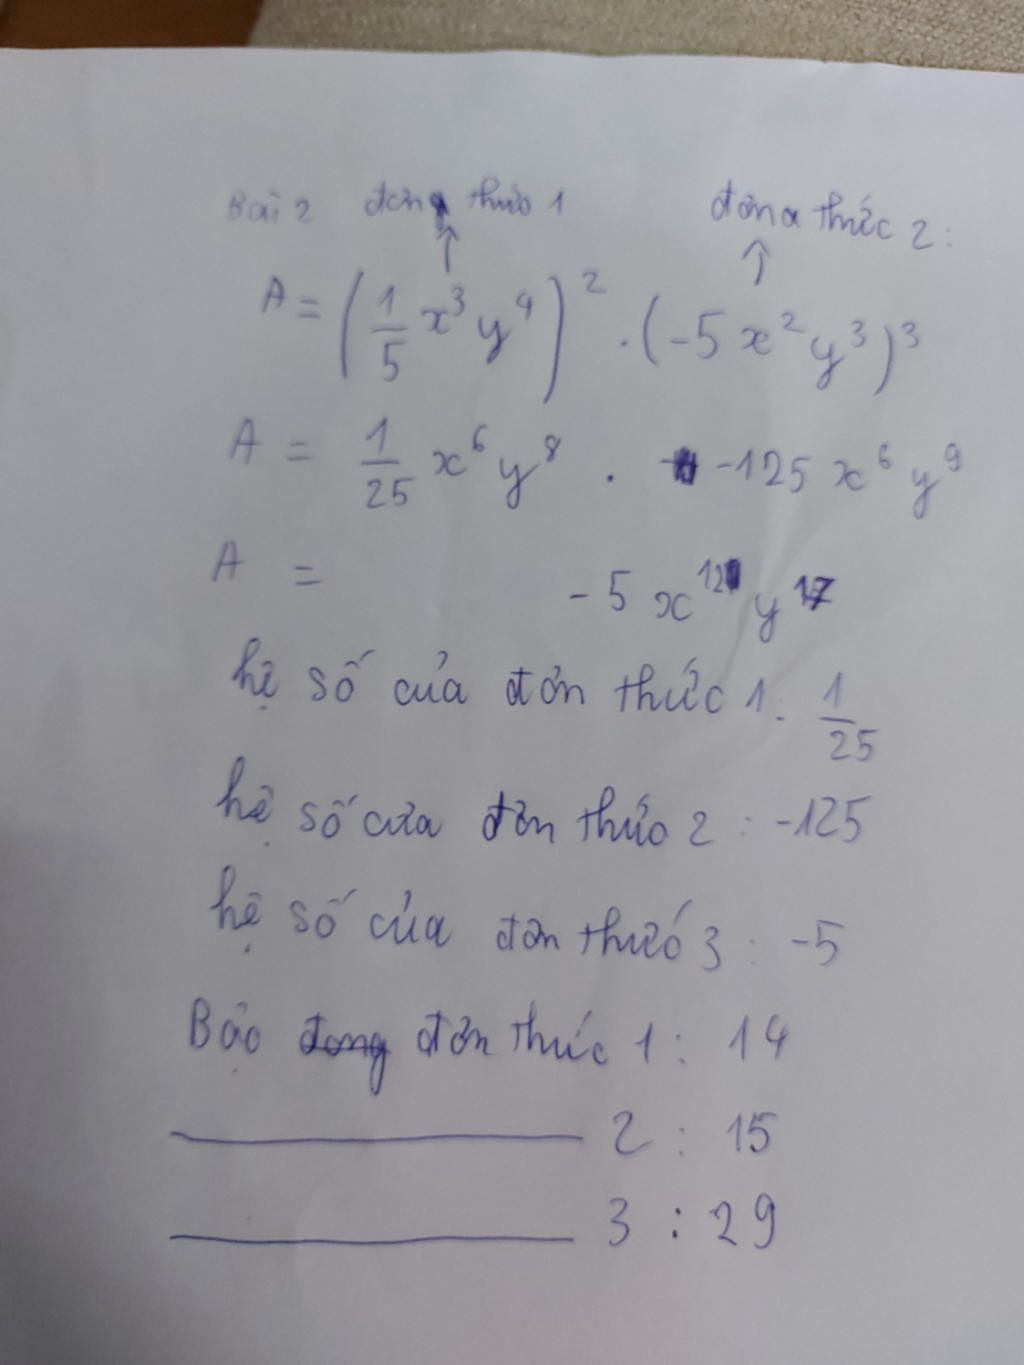 Bài 2 đơn thức 1 đơn thức 2:
A = (1/5 x³ y⁴)² . (-5 x² y³)³
A = 1/25 x⁶ y⁸ . -125 x⁶ y⁹
A = -5 x¹² y¹⁷
hệ số của đơn thức 1: 1/25
hệ số của đơn thức 2 : -125
hệ số của đơn thức 3 : -5
Bậc đơn thức 1 : 14
2 : 15
3 : 29